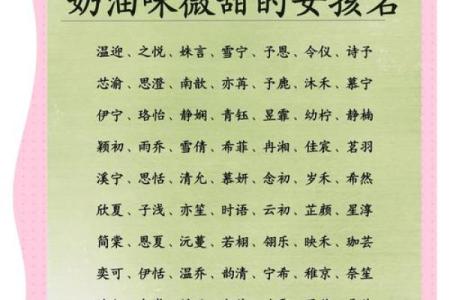 奶油味微甜的女孩名
温迎、之悦、姝言、雪宁、予恩、令仪、诗子
芯渝、思澄、南歆、亦苒、予鹿、沐禾、慕宁
伊宁、珞怡、静娴、青钰、昱霏、幼柠、静楠
颖初、雨乔、雪倩、希菲、冉湘、佳宸、茗羽
溪宁、思恬、清允、慕妍、念初、岁禾、希然
欣夏、子浅、亦笙、时语、云初、芷颜、星淳
简棠、恩夏、沅蔓、若栩、翎乐、映禾、珈芸
奕可、伊恬、温乔、韵清、宁希、稚京、奈笙